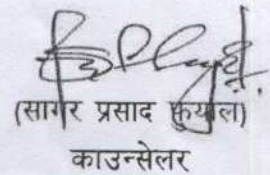 (सागर प्रसाद फुयाल)
काउन्सेलर